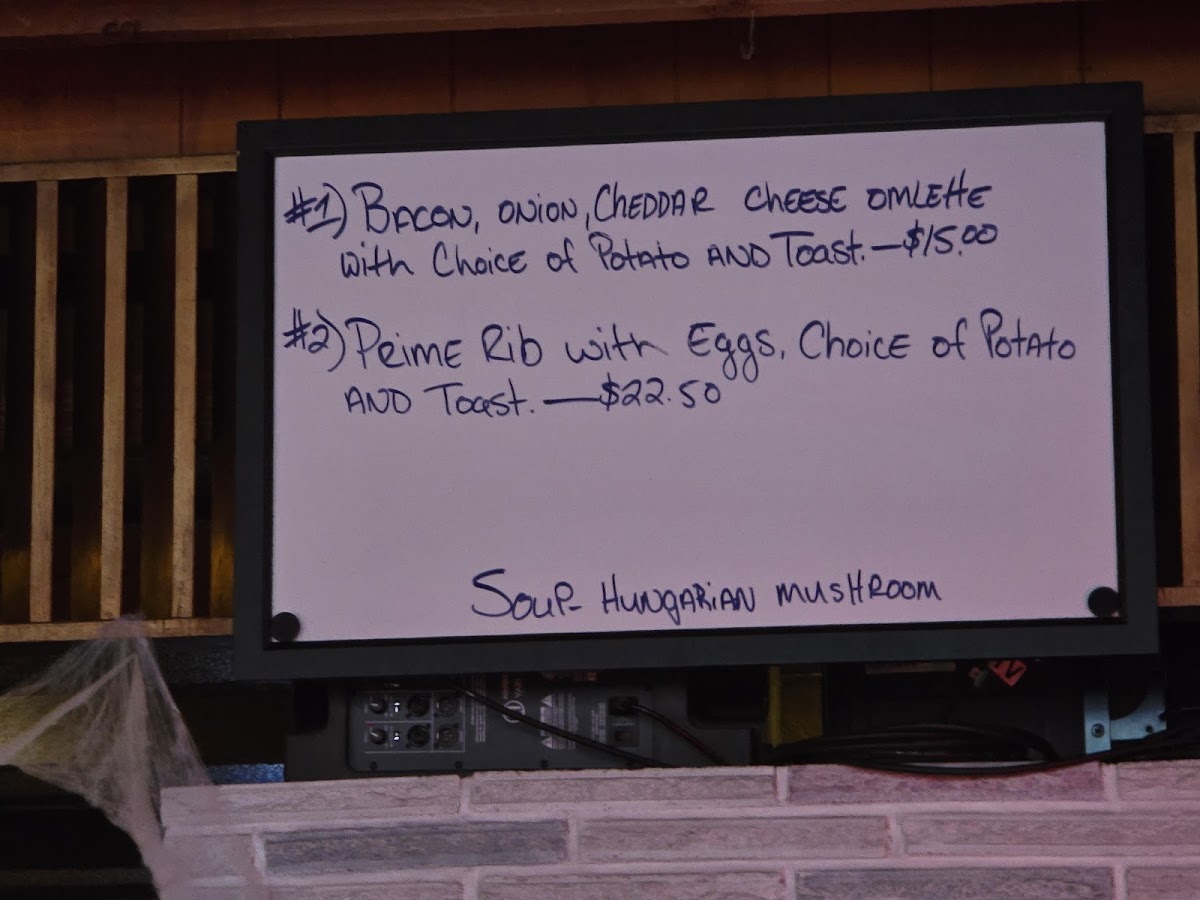 #1) BACON, ONION, CHEDDAR CHEESE OMLETTE
with Choice of Potato AND Toast. — $15.00
#2) Prime Rib with Eggs, Choice of Potato
AND Toast. — $22.50
Soup - HUNGARIAN MUSHROOM